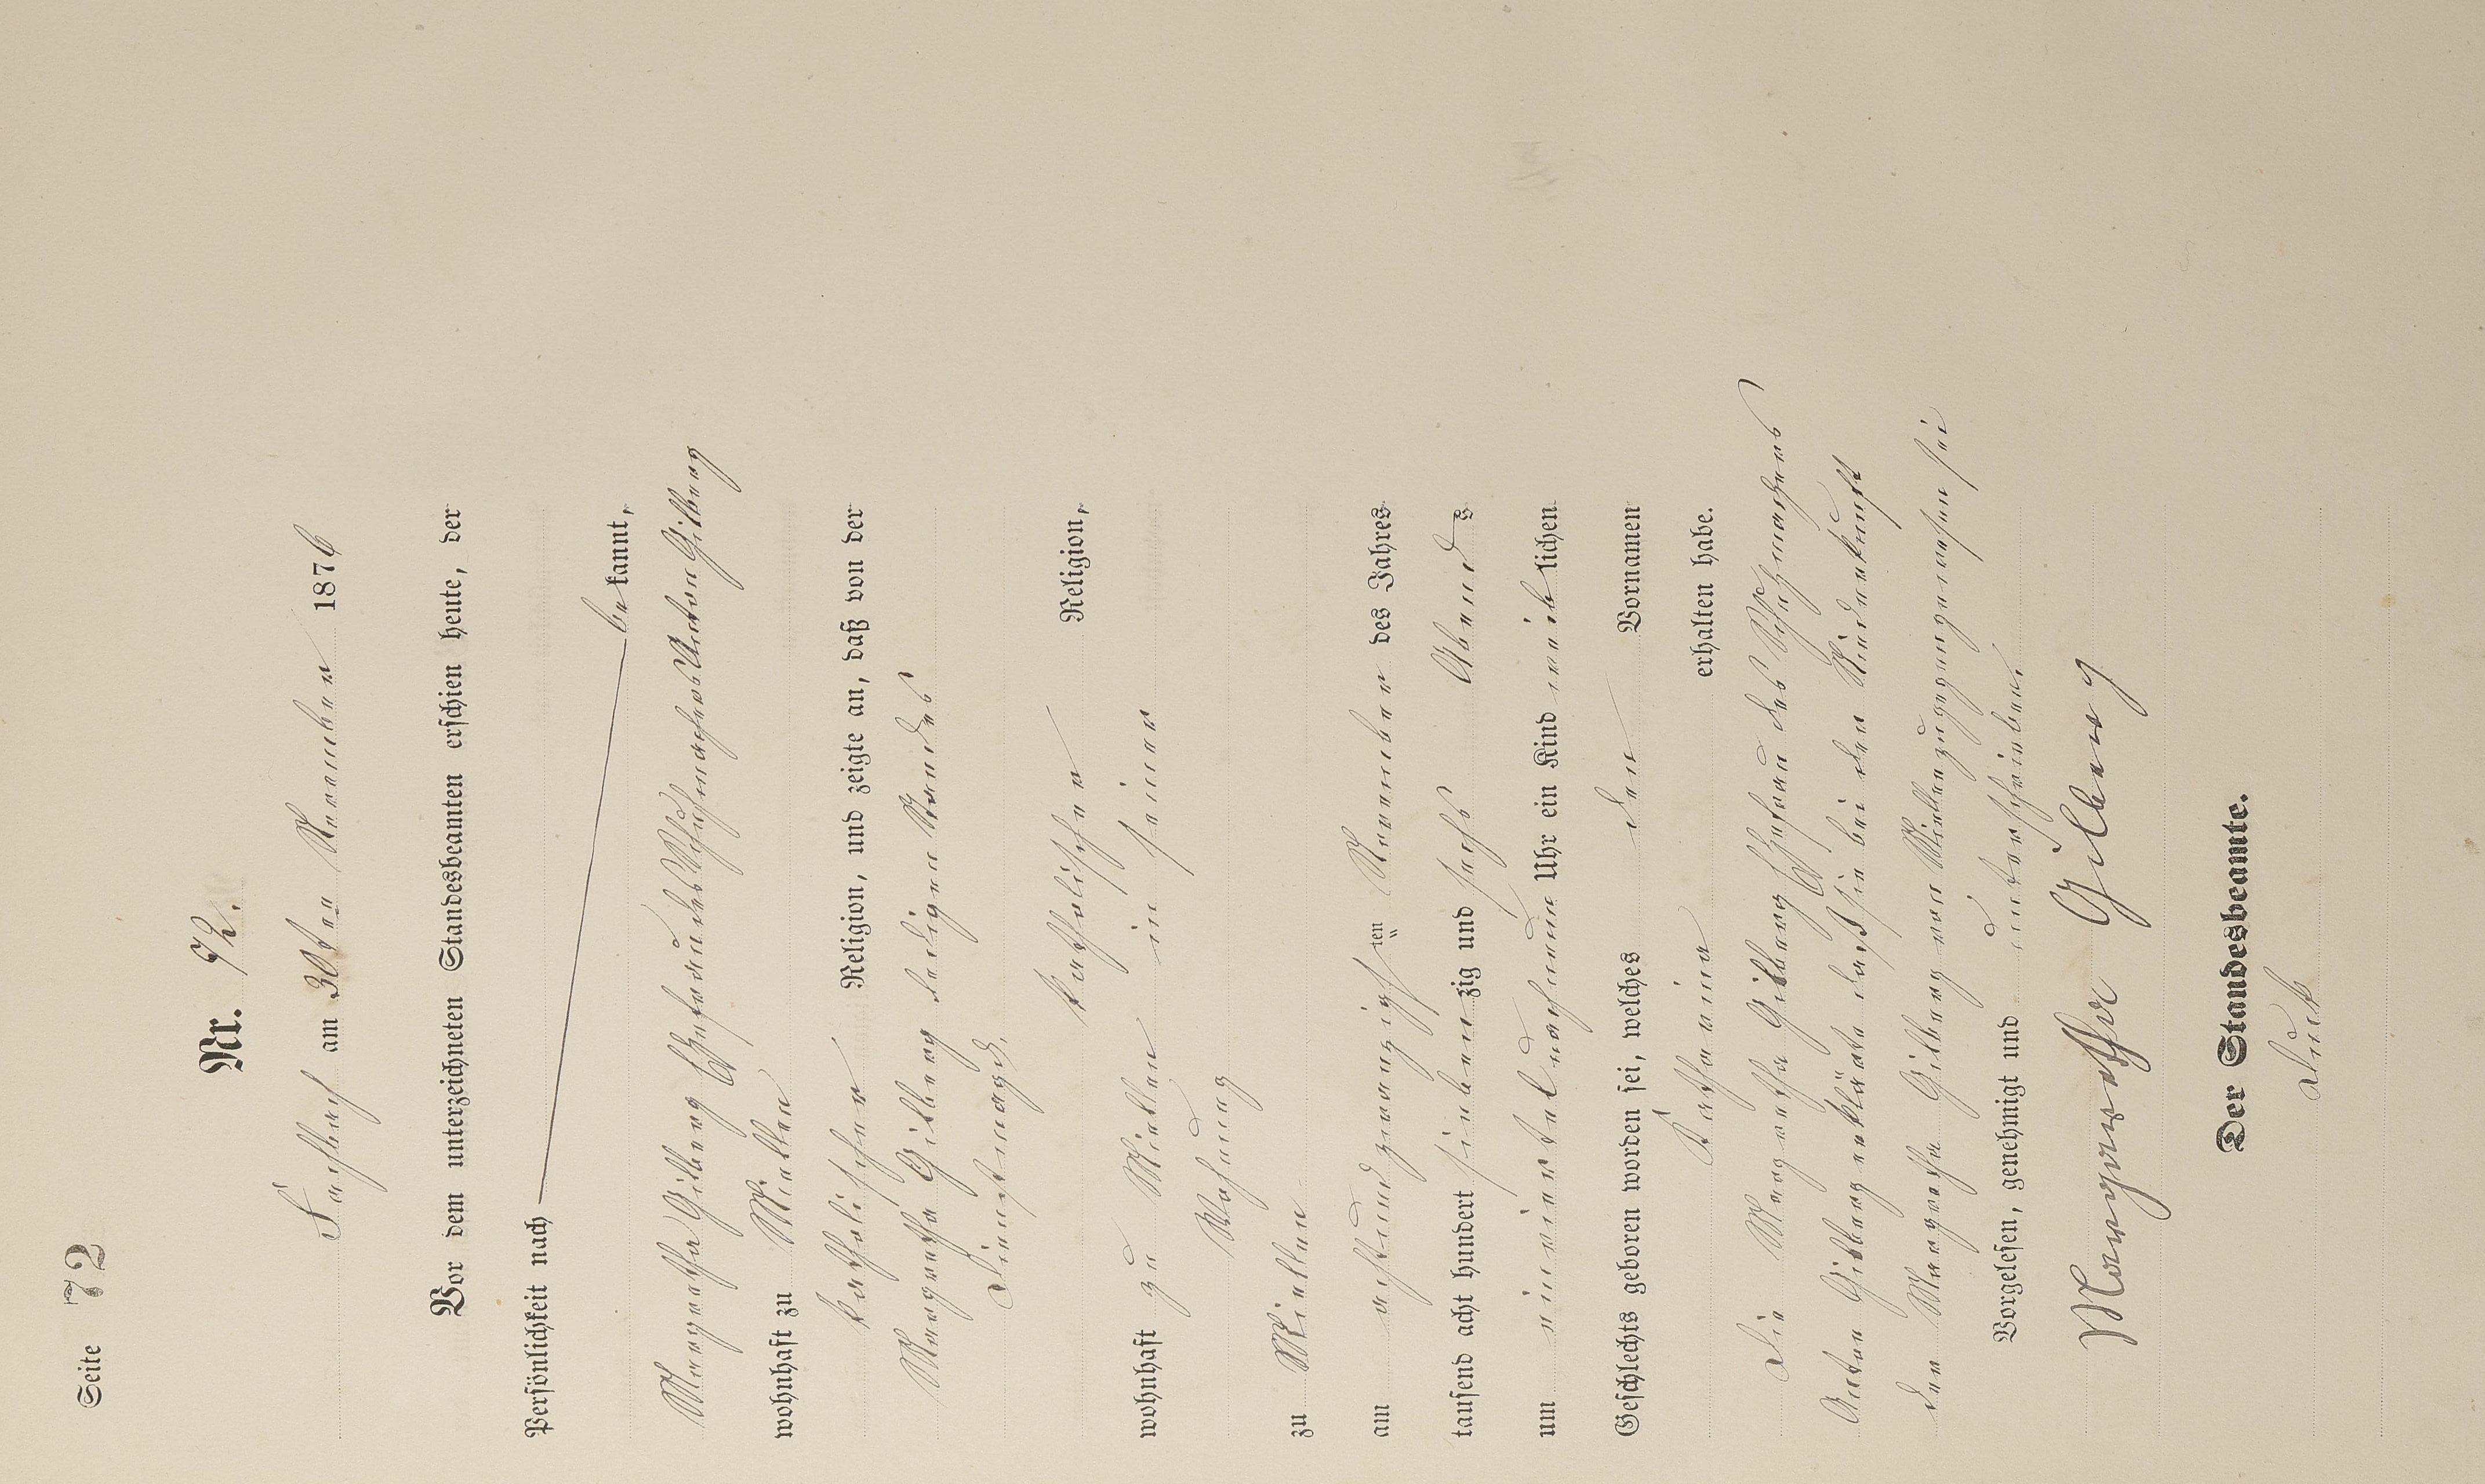 Seite 72
Nr. 72.
Fachbach am 30ten November 1876
Vor dem unterzeichneten Standesbeamten erschien heute, der
Persönlichkeit nach
bekannt,
Margretha Gilberg Ehefrau des Schuhmachers Anton Gilberg
wohnhaft zu Miellen
katholischer Religion, und zeigte an, daß von der
Margretha Gilberg ledigen Standes
Dienstmagd,
katholischer Religion,
wohnhaft zu Miellen in seiner
Wohnung
zu Miellen
am achtundzwanzigsten November des Jahres
tausend acht hundert siebenzig und sechs Abends
um einviertel nach neun Uhr ein Kind weiblichen
Geschlechts geboren worden sei, welches den Vornamen
Katharina
erhalten habe.
Die Margretha Gilberg Ehefrau des Schuhmachers
Anton Gilberg erklärte daß sie bei der Niederkunft
der Margretha Gilberg von Miellen zugegen gewesen sei
Vorgelesen, genehmigt und unterschrieben.
Margretha Gilberg
Der Standesbeamte.